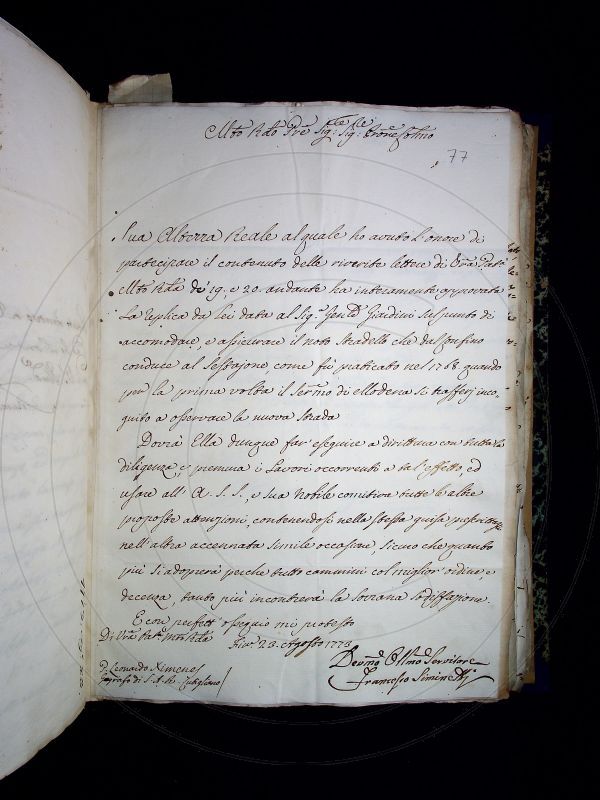 Mto Rdo Pre Sig.re Sig.
77
Sua Altezza Reale al quale ho avuto l'onore di
partecipare il contenuto delle riverite lettere di Vra Patà
Mto Rda de 19. e 20. andante ha interamente approvata
La replica da lei data al Sig.e Giardini sul punto di
accomodare, e assicurare il noto stradello che dal confino
conduce al Sestajone come fù praticato nel 1768. quando
per la prima volta il Sermo di Modena si trasferj inco,
gnito a osservare la nuova strada
Dovrà Ella dunque far' eseguire a dirittura con tutta la
diligenza, e premura i Lavori occorrenti a tal' effetto, ed
usare all' A. S. S., e sua Nobile comitiva tutte le altre
proposte attenzioni, contenendosi nella stessa guisa
nell' altra accennata simile occasione, sicuro che quanto
più si adoprerà perche tutto cammini col miglior' ordine, e
decenza, tanto più incontrerà la sovrana sodisfazione.
E con perfett' ossequio mi protesto
Di Vra Patà Mto Rda
Fire 23. Agosto 1773
Devmo Servitore
P. Leonardo Ximenes
Geografo di S. A. R. Cutigliano
Francesco Siminetti